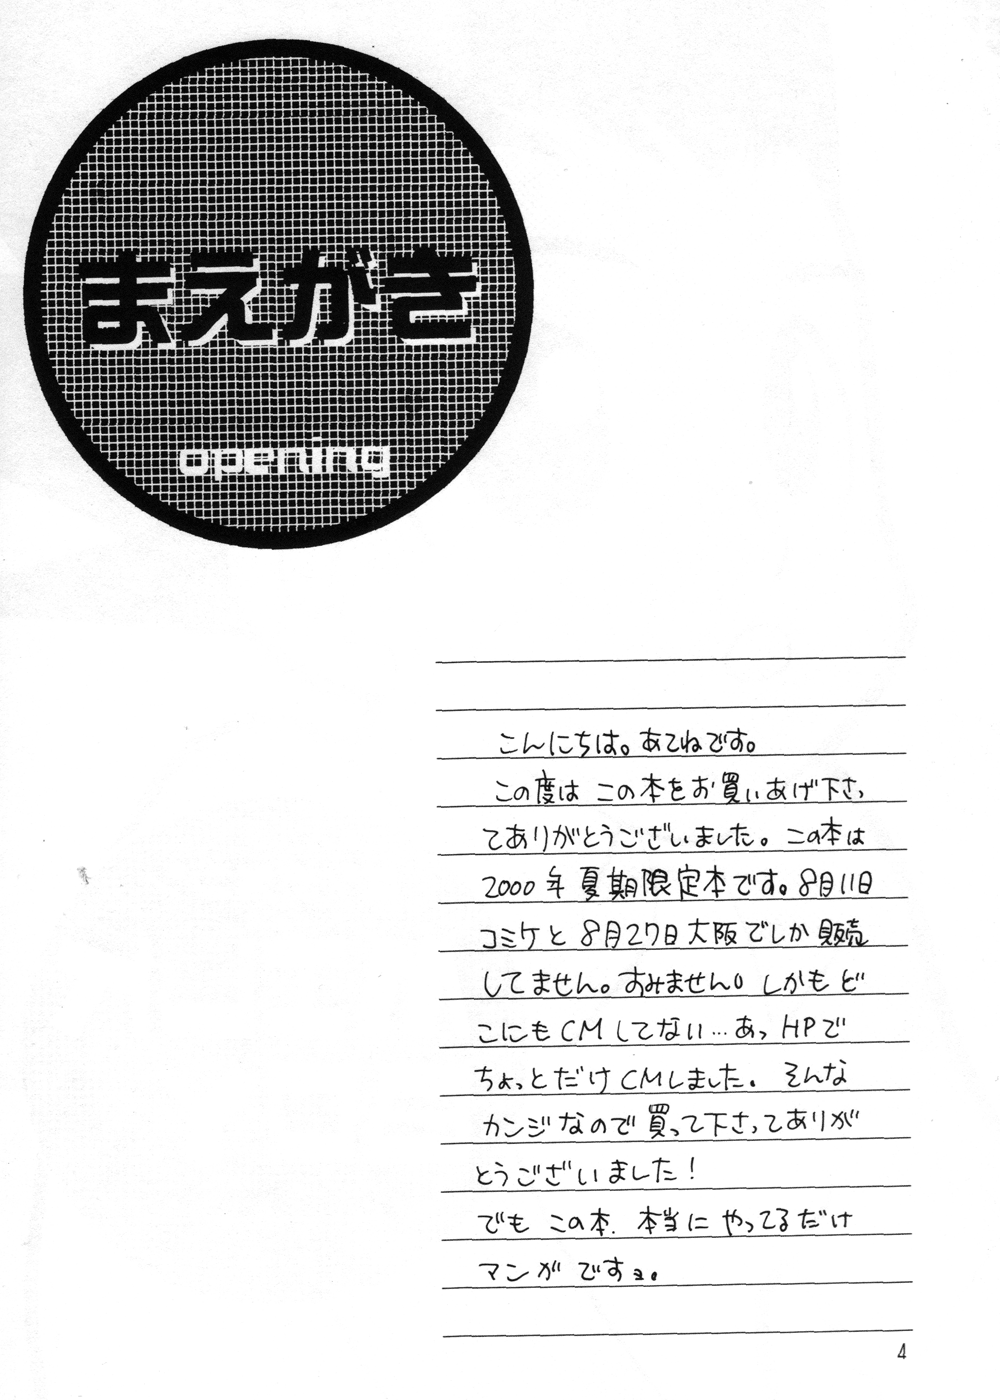 まえがき
opening
こんにちは。あてねです。
この度は この本をお買いあげ下さっ
てありがとうございました。この本は
2000年夏期限定本です。8月11日
コミケと 8月27日大阪でしか販売
してません。すみません。しかもど
こにもCMしてない…あっHPで
ちょっとだけCMしました。そんな
カンジなので買って下さってありが
とうございました!
でも この本、本当に やってるだけ
マンが ですョ。
4